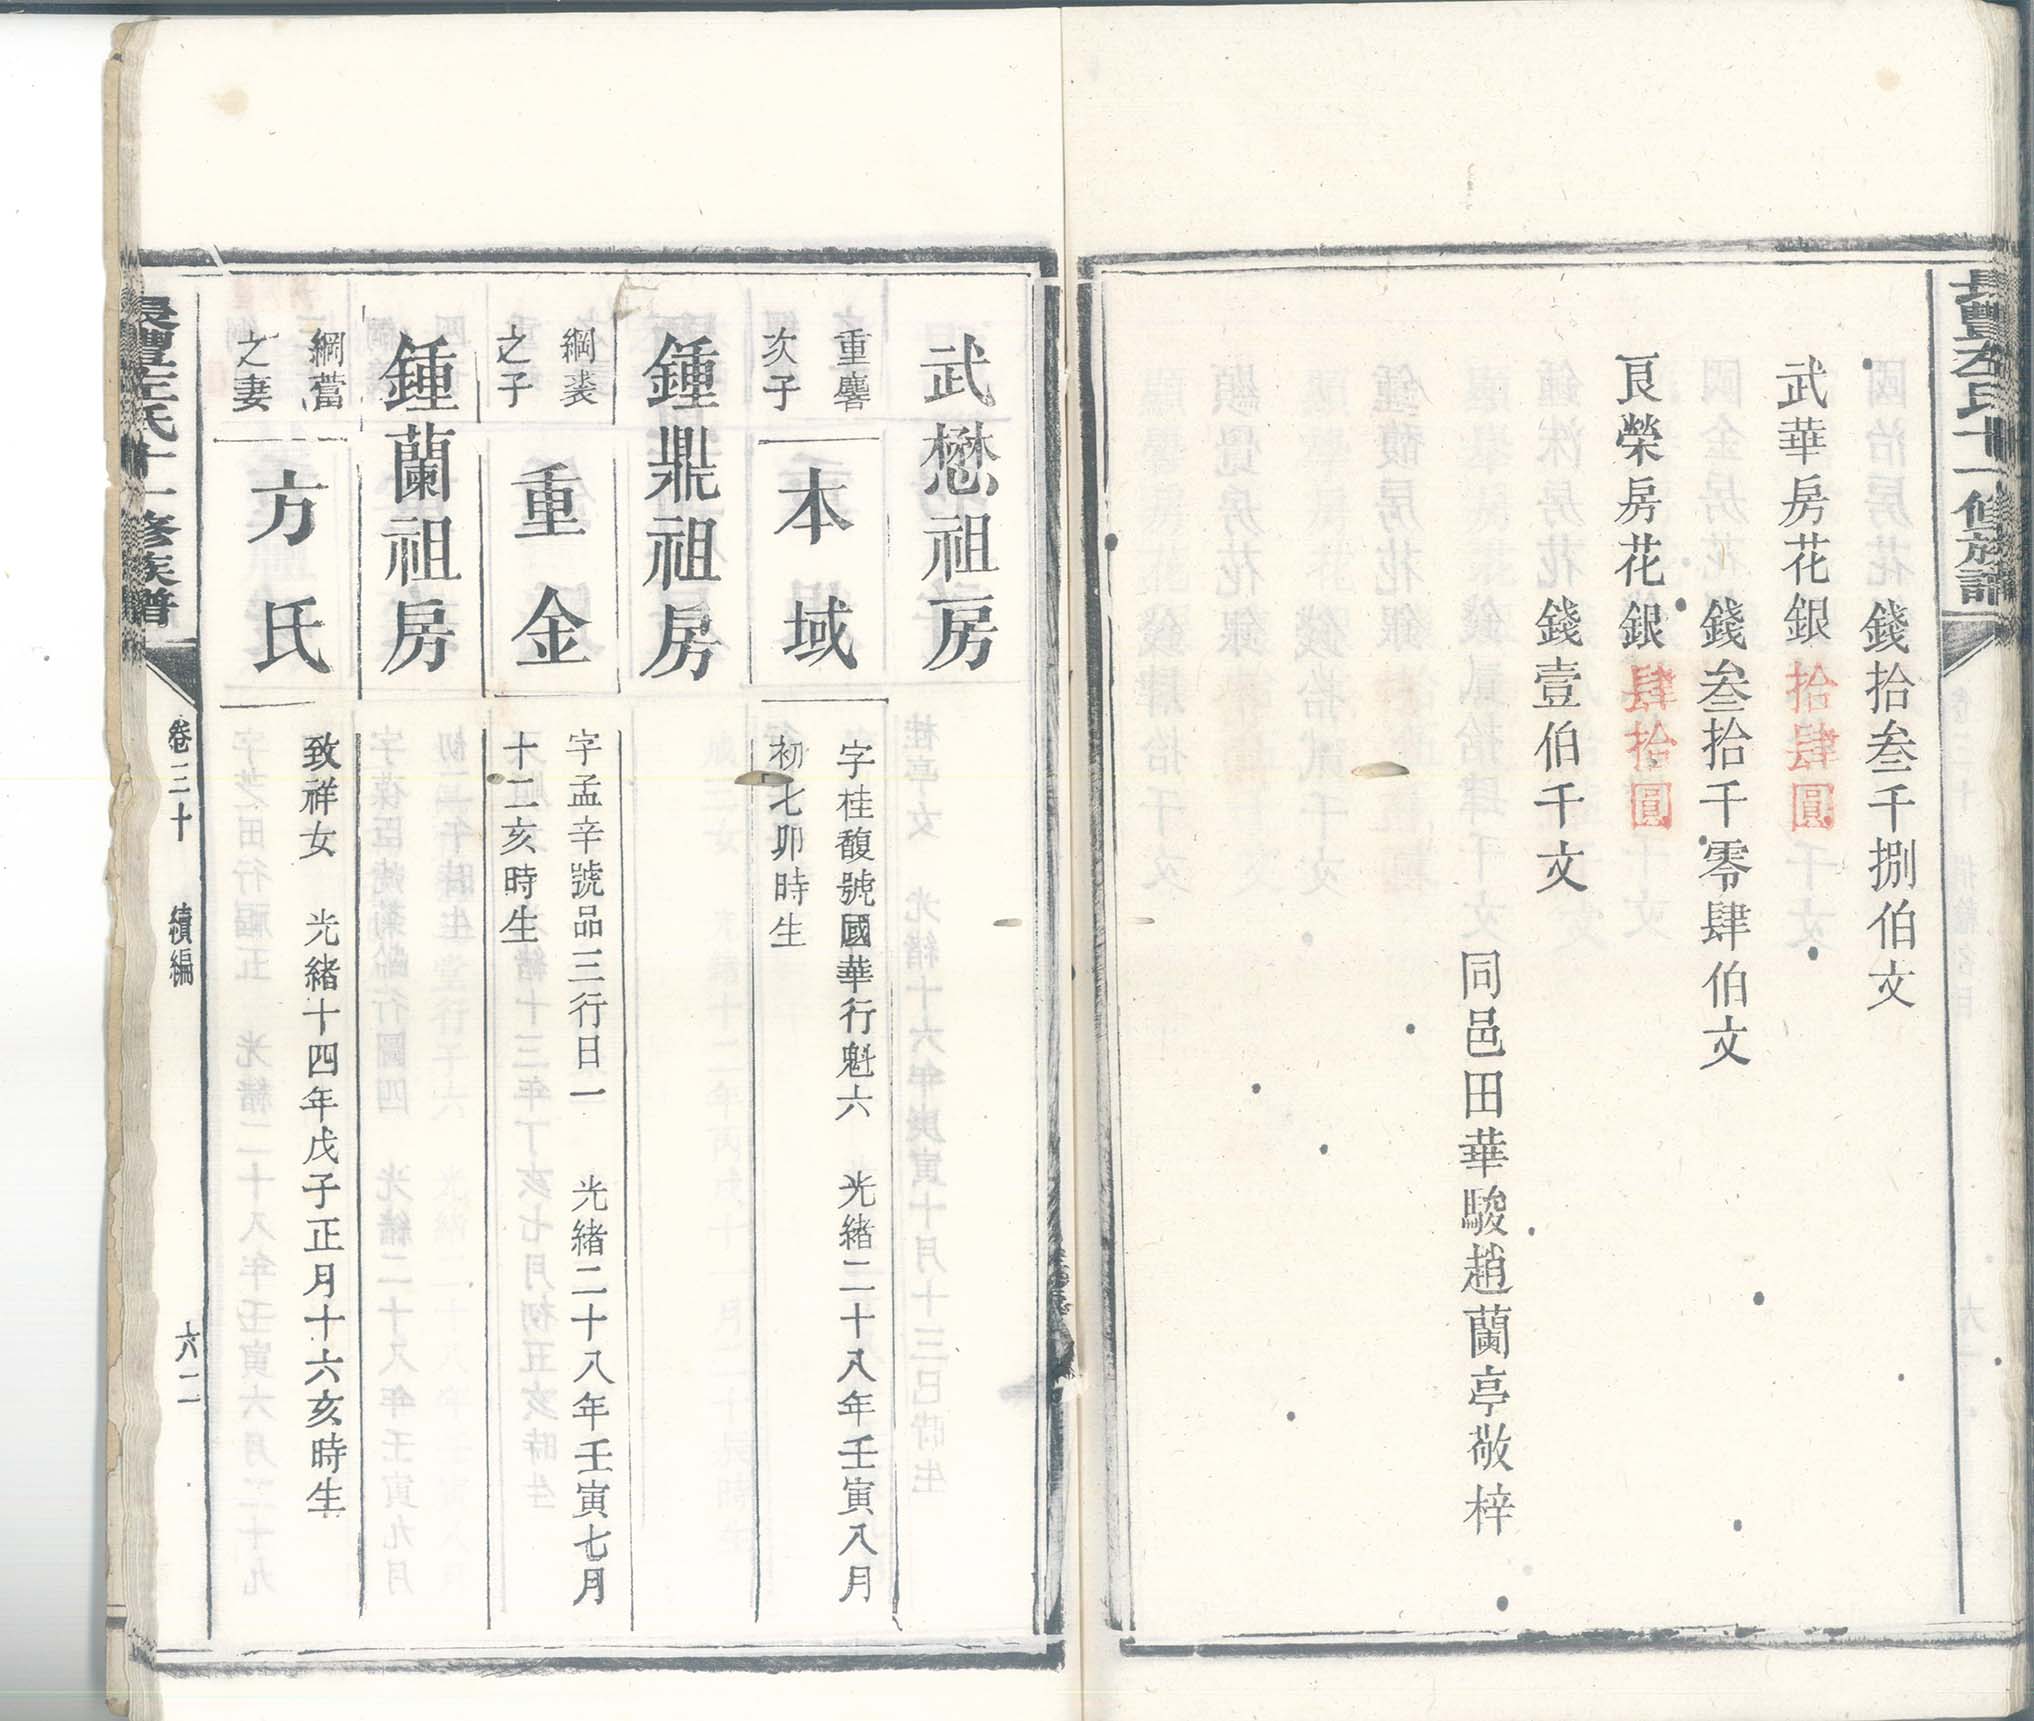 長豐左氏十一修族譜
錢拾叁千捌伯文
武華房花銀拾肆圓
錢叁拾千零肆伯文
良榮房花銀肆拾圓
錢壹伯千文
同邑田華駿趙蘭亭敬梓
武懋祖房
重麐次子
本域
字桂馥號國華行魁六 光緒二十八年壬寅八月
初七卯時生
鍾鼎祖房
綱裘之子
重金
字孟辛號品三行日一 光緒二十八年壬寅七月
十二亥時生
鍾蘭祖房
綱蕾之妻
方氏
致祥女 光緒十四年戊子正月十六亥時生
長豐左氏十一修族譜
卷三十 續編
六二